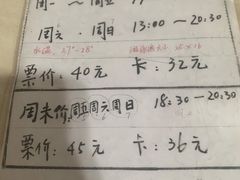 周一～周五
周六.周日 13:00～20:30
水温 27°~28°
票价: 40元 卡: 32元
周末价 周五周六周日 18:30～20:30
票价: 45元 卡: 36元